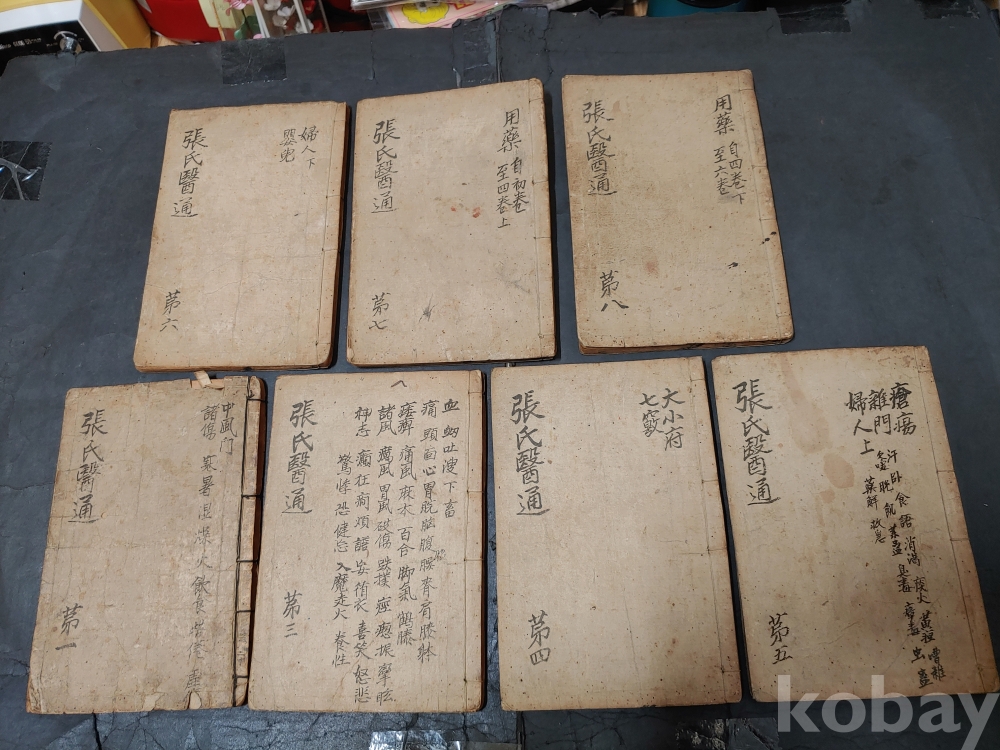 婦人下
嬰兒
張氏醫通
第六
用藥
自初卷
至四卷上
張氏醫通
第七
用藥
自四卷下
至六卷
張氏醫通
第八
中風門
諸傷 寒暑湿燥火飲食労倦
張氏醫通
第一
血衄吐溲下畜
痛頭面心胃脘脇腹腰脊肩膝
痿痺痛風麻木百合脚氣鶴膝
諸風癘風胃風破傷跌撲痙瘛振攣眩
神志癲狂煩躁妄循衣喜笑怒悲
驚悸恐健忘入魔走火養性
張氏醫通
第三
大小府
七竅
張氏醫通
第四
瘡瘍
雜門 汗臥食語消渴
婦人上
張氏醫通
第五
kobay